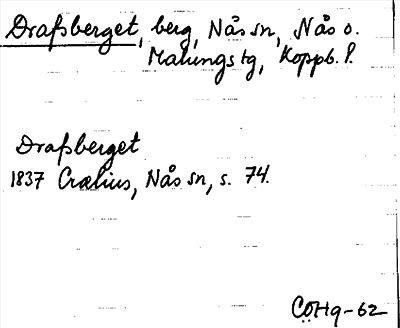 Draßberget, berg, Nås sn, Nås o.
Malungs tg, Koppb. l.
Draßberget
1837 Crælius, Nås sn, s. 74.
CÖHg-62